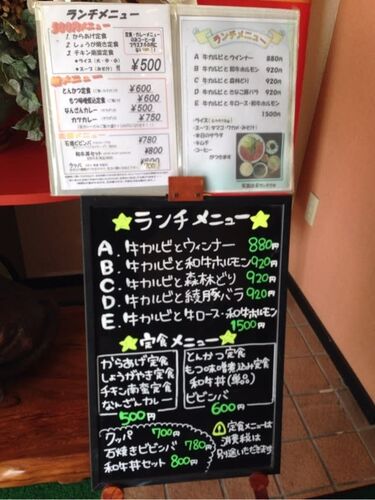 ランチメニュー
500円メニュー
1 からあげ定食
2 しょうが焼き定食
3 チキン南蛮定食
¥500
とんかつ定食
¥600
もつ味噌煮込定食
¥600
なんざんカレー
¥500
カツカレー
¥750
石焼ビビンバ
¥780
和牛丼セット
¥800
クッパ
ランチメニュー
A 牛カルビとウィンナー 880円
B 牛カルビと和牛ホルモン 920円
C 牛カルビと森林どり 920円
D 牛カルビときなこ豚バラ 920円
E 牛カルビと牛ロース・和牛ホルモン
1500円
・ライス
・スープ
・本日のサラダ
・キムチ
・コーヒー
がつきます
ランチメニュー
A. 牛カルビとウィンナー 880円
B. 牛カルビと和牛ホルモン 920円
C. 牛カルビと森林どり 920円
D. 牛カルビと綾豚バラ 920円
E. 牛カルビと牛ロース・和牛ホルモン
1500円
定食メニュー
からあげ定食
しょうがやき定食
チキン南蛮定食
なんざんカレー
500円
とんかつ定食
もつ味噌煮込み定食
和牛丼(単品)
ビビンバ
600円
クッパ 700円
石焼きビビンバ 780円
和牛丼セット 800円
定食メニューは
消費税は
別途いただきます